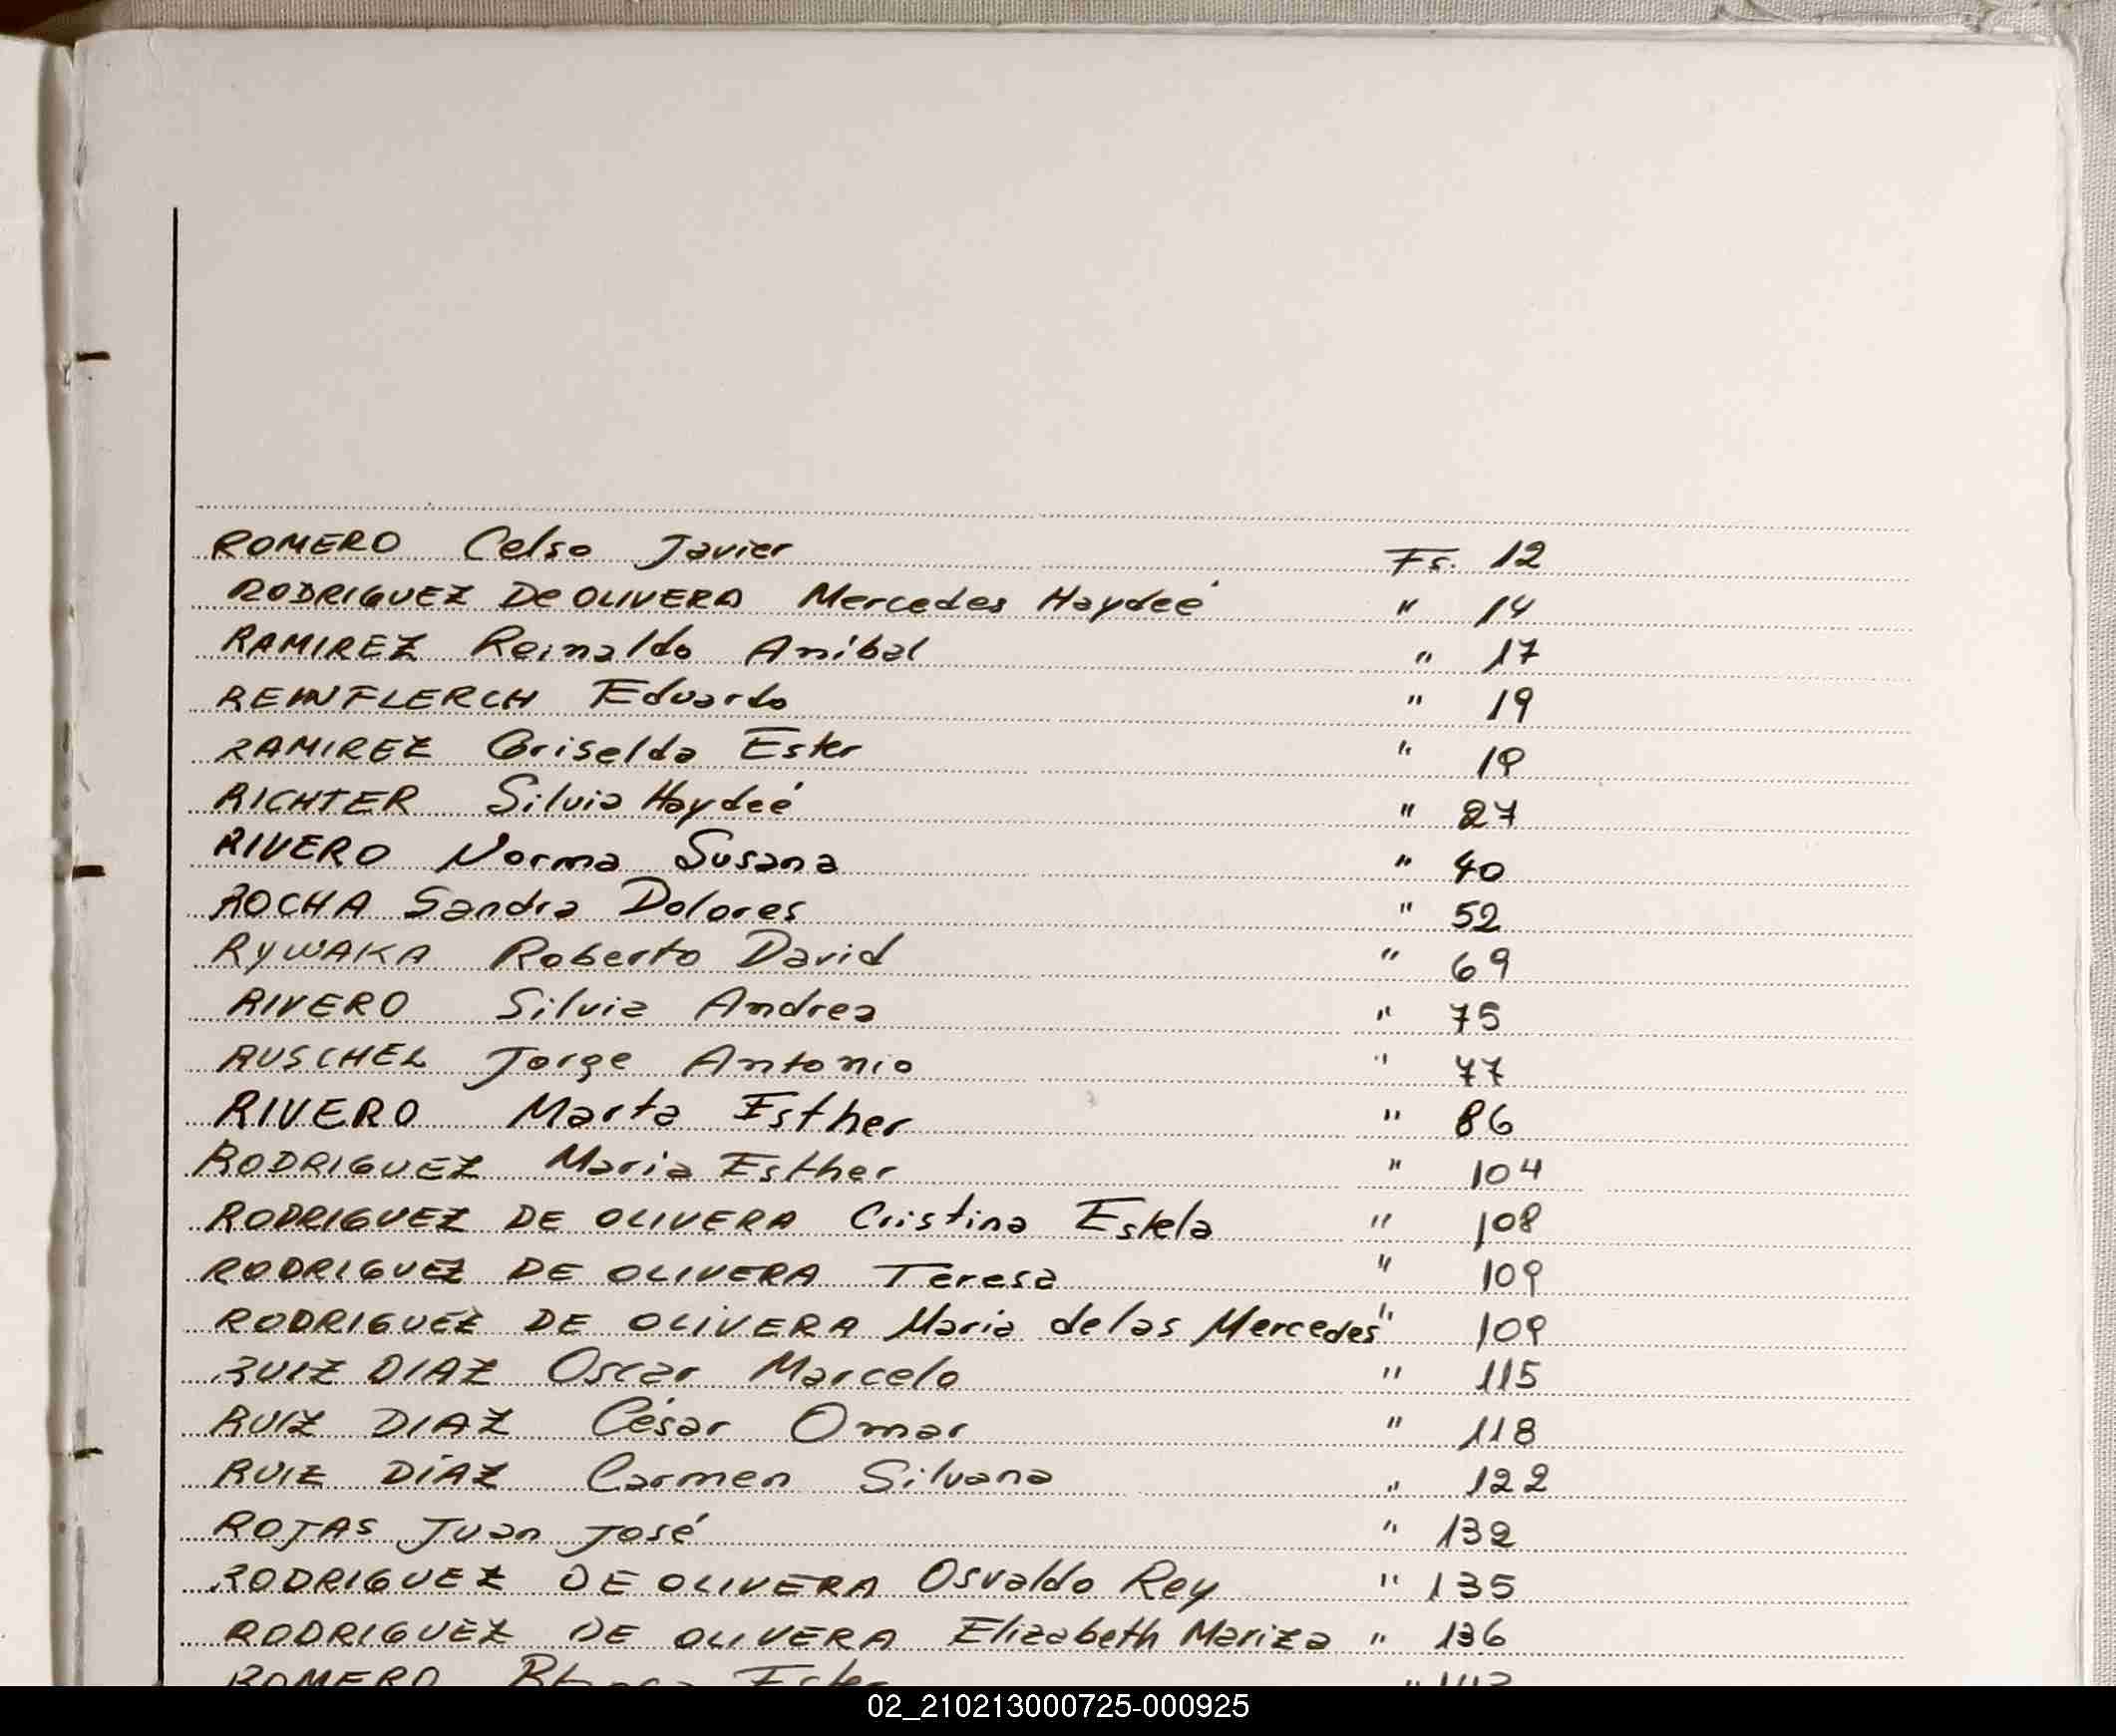 ROMERO Celso Javier Fs. 12
RODRIGUEZ De OLIVERA Mercedes Haydeé " 14
RAMIREZ Reinaldo Aníbal " 17
Eduardo " 19
RAMIREZ Griselda Ester " 19
RICHTER Silvia Haydeé " 27
RIVERO Norma Susana " 40
ROCHA Sandra Dolores " 52
RYWAKA Roberto David " 69
RIVERO Silvia Andrea " 75
RUSCHEL Jorge Antonio " 77
RIVERO Marta Esther " 86
RODRIGUEZ Maria Esther " 104
RODRIGUEZ DE OLIVERA Cristina Estela " 108
RODRIGUEZ DE OLIVERA Teresa " 109
RODRIGUEZ DE OLIVERA Maria de las Mercedes " 109
RUIZ DIAZ Oscar Marcelo " 115
RUIZ DIAZ César Omar " 118
RUIZ DÍAZ Carmen Silvana " 122
ROJAS Juan José " 132
RODRIGUEZ DE OLIVERA Osvaldo Rey " 135
RODRIGUEZ DE OLIVERA Elizabeth Mariza " 136
ROMERO Blanca Ester "
02_210213000725-000925